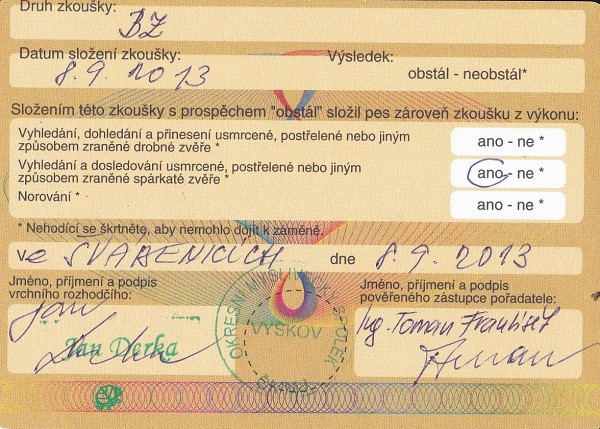 Druh zkoušky:
BZ
Datum složení zkoušky: Výsledek:
8.9.2013 obstál - neobstál*
Složením této zkoušky s prospěchem "obstál" složil pes zároveň zkoušku z výkonu:
Vyhledání, dohledání a přinesení usmrcené, postřelené nebo jiným
způsobem zraněné drobné zvěře * ano - ne *
Vyhledání a dosledování usmrcené, postřelené nebo jiným
způsobem zraněné spárkaté zvěře * ano - ne *
Norování * ano - ne *
* Nehodící se škrtněte, aby nemohlo dojít k záměně.
Ve SVÁBENICÍCH dne 8.9.2013
Jméno, příjmení a podpis
vrchního rozhodčího:
Jméno, příjmení a podpis
pověřeného zástupce pořadatele:
Jan Derka
OKRESNÍ MYSLIVECKÝ SPOLEK
VYŠKOV
Ing. Toman František
Toman